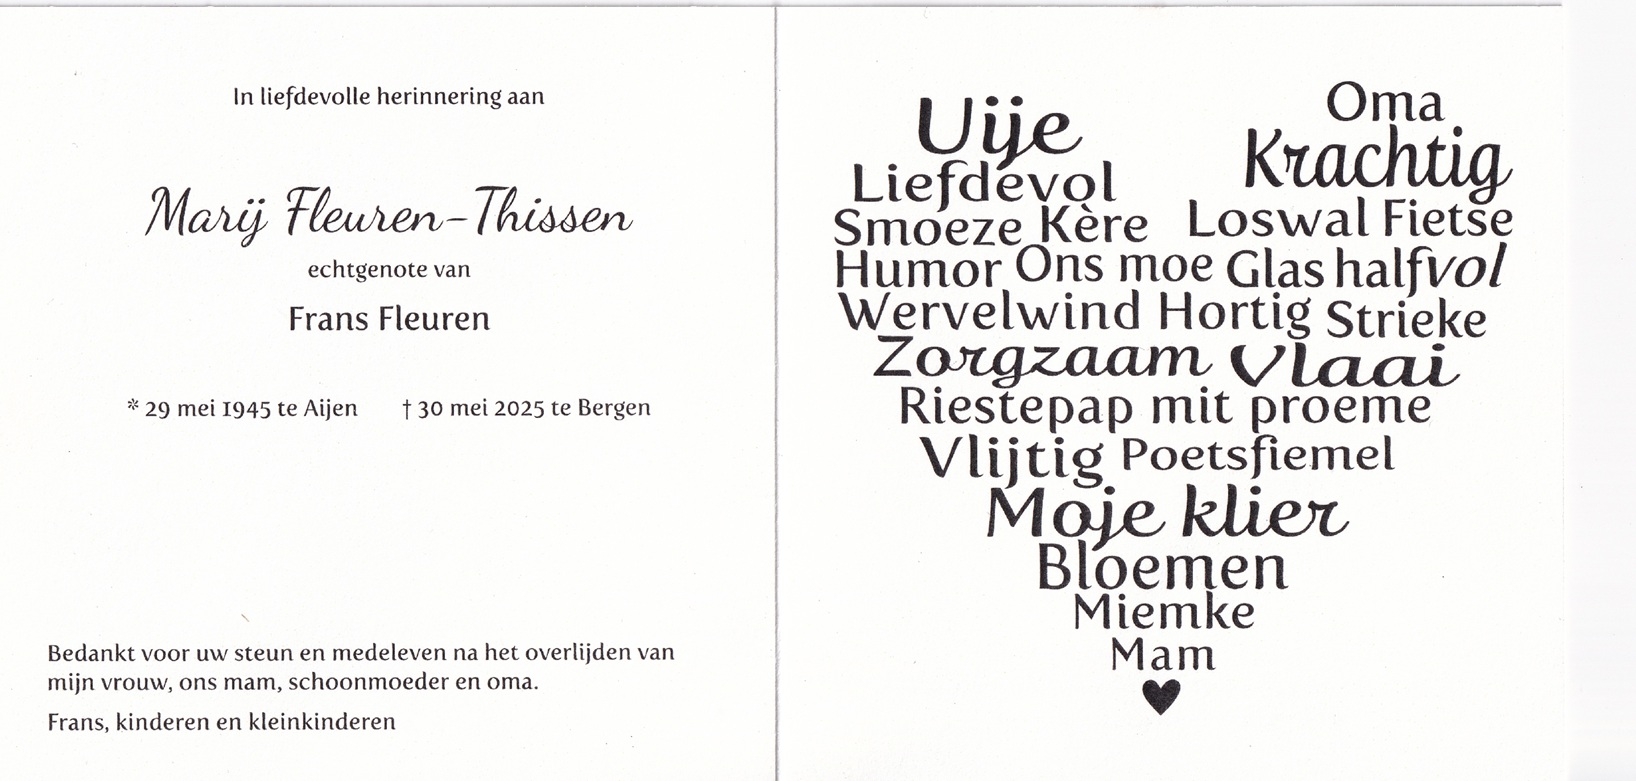 In liefdevolle herinnering aan
Marij Fleuren-Thissen
echtgenote van
Frans Fleuren
* 29 mei 1945 te Aijen † 30 mei 2025 te Bergen
Bedankt voor uw steun en medeleven na het overlijden van
mijn vrouw, ons mam, schoonmoeder en oma.
Frans, kinderen en kleinkinderen
Uije
Oma
Liefdevol
Krachtig
Smoeze Kère
Loswal Fietse
Humor Ons moe Glas halfvol
Wervelwind Hortig Strieke
Zorgzaam Vlaai
Riestepap mit proeme
Vlijtig Poetsfiemel
Moje klier
Bloemen
Miemke
Mam